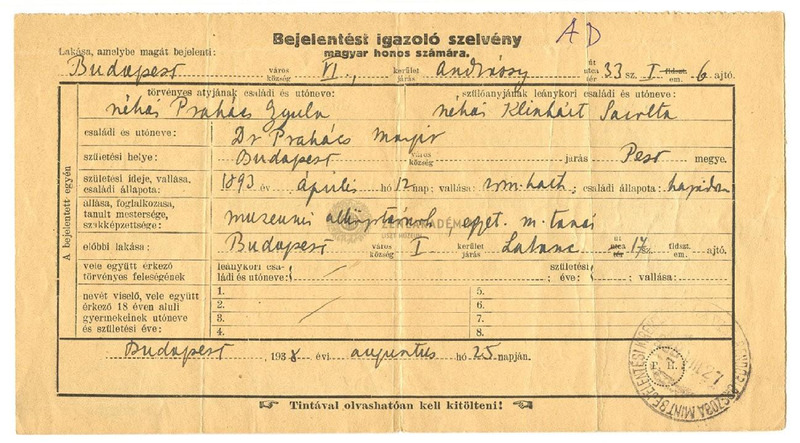 Bejelentést igazoló szelvény
magyar honos számára.
A D
Lakása, amelybe magát bejelenti:
Budapest város község VI., kerület járás Andrássy út utca tér 33 sz. I fldszt. em. 6 ajtó.
törvényes atyjának családi és utóneve: szülőanyjának leánykori családi és utóneve:
néhai Prahács Gyula néhai Klinháit Sarolta
A bejelentett egyén
családi és utóneve: Dr Prahács
születési helye: Budapest város község járás Pest megye.
születési ideje, vallása, családi állapota: 1893 év április hó 12 nap; vallása: rom. kath; családi állapota: hajadon
állása, foglalkozása, tanult mestersége, szakképzettsége: muzeumi egyet. m. tanár
ZENEAKADÉMIA
LISZT MÚZEUM
előbbi lakása: Budapest város község I kerület járás út utca tér 17 sz. fldszt. em. ajtó.
vele együtt érkező törvényes feleségének leánykori családi és utóneve: születési éve: vallása:
nevét viselő, vele együtt érkező 18 éven aluli gyermekeinek utóneve és születési éve:
1. 5.
2. 6.
3. 7.
4. 8.
Budapest 1938 évi augusztus hó 25 napján.
P. H.
☞ Tintával olvashatóan kell kitölteni! ☜